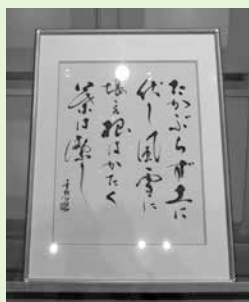 たかぶらず土に
伏し風雪に
堪え根はかたく
葉は潔し